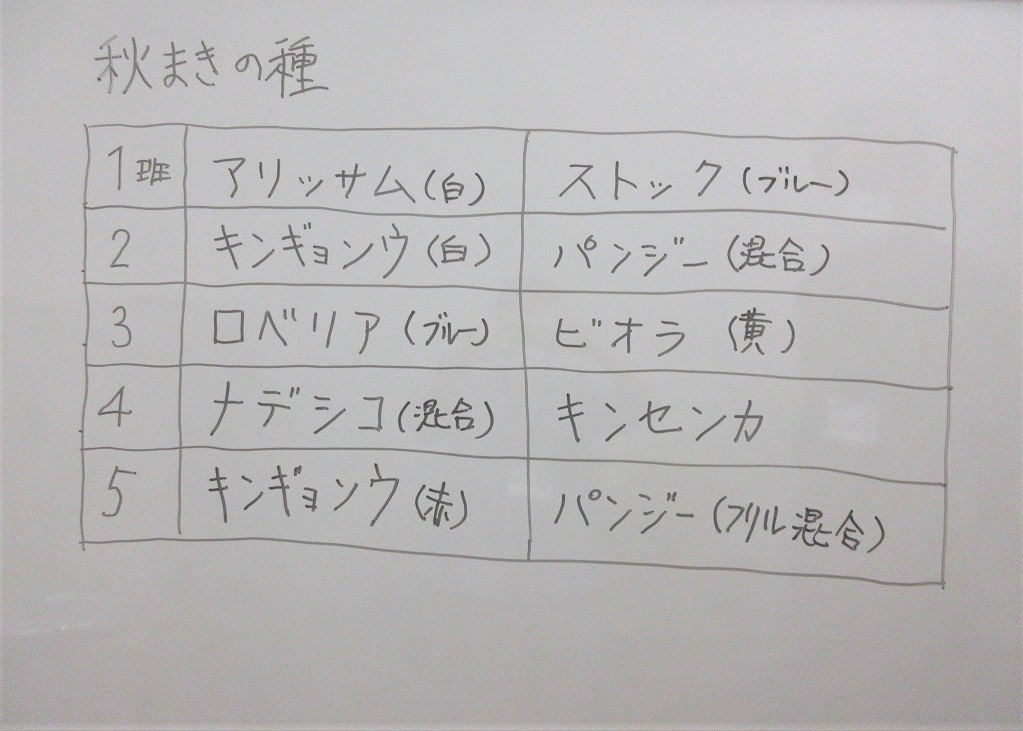 秋まきの種
1班 アリッサム(白) ストック(ブルー)
2 キンギョソウ(白) パンジー(混合)
3 ロベリア(ブルー) ビオラ (黄)
4 ナデシコ(混合) キンセンカ
5 キンギョソウ(赤) パンジー(フリル混合)